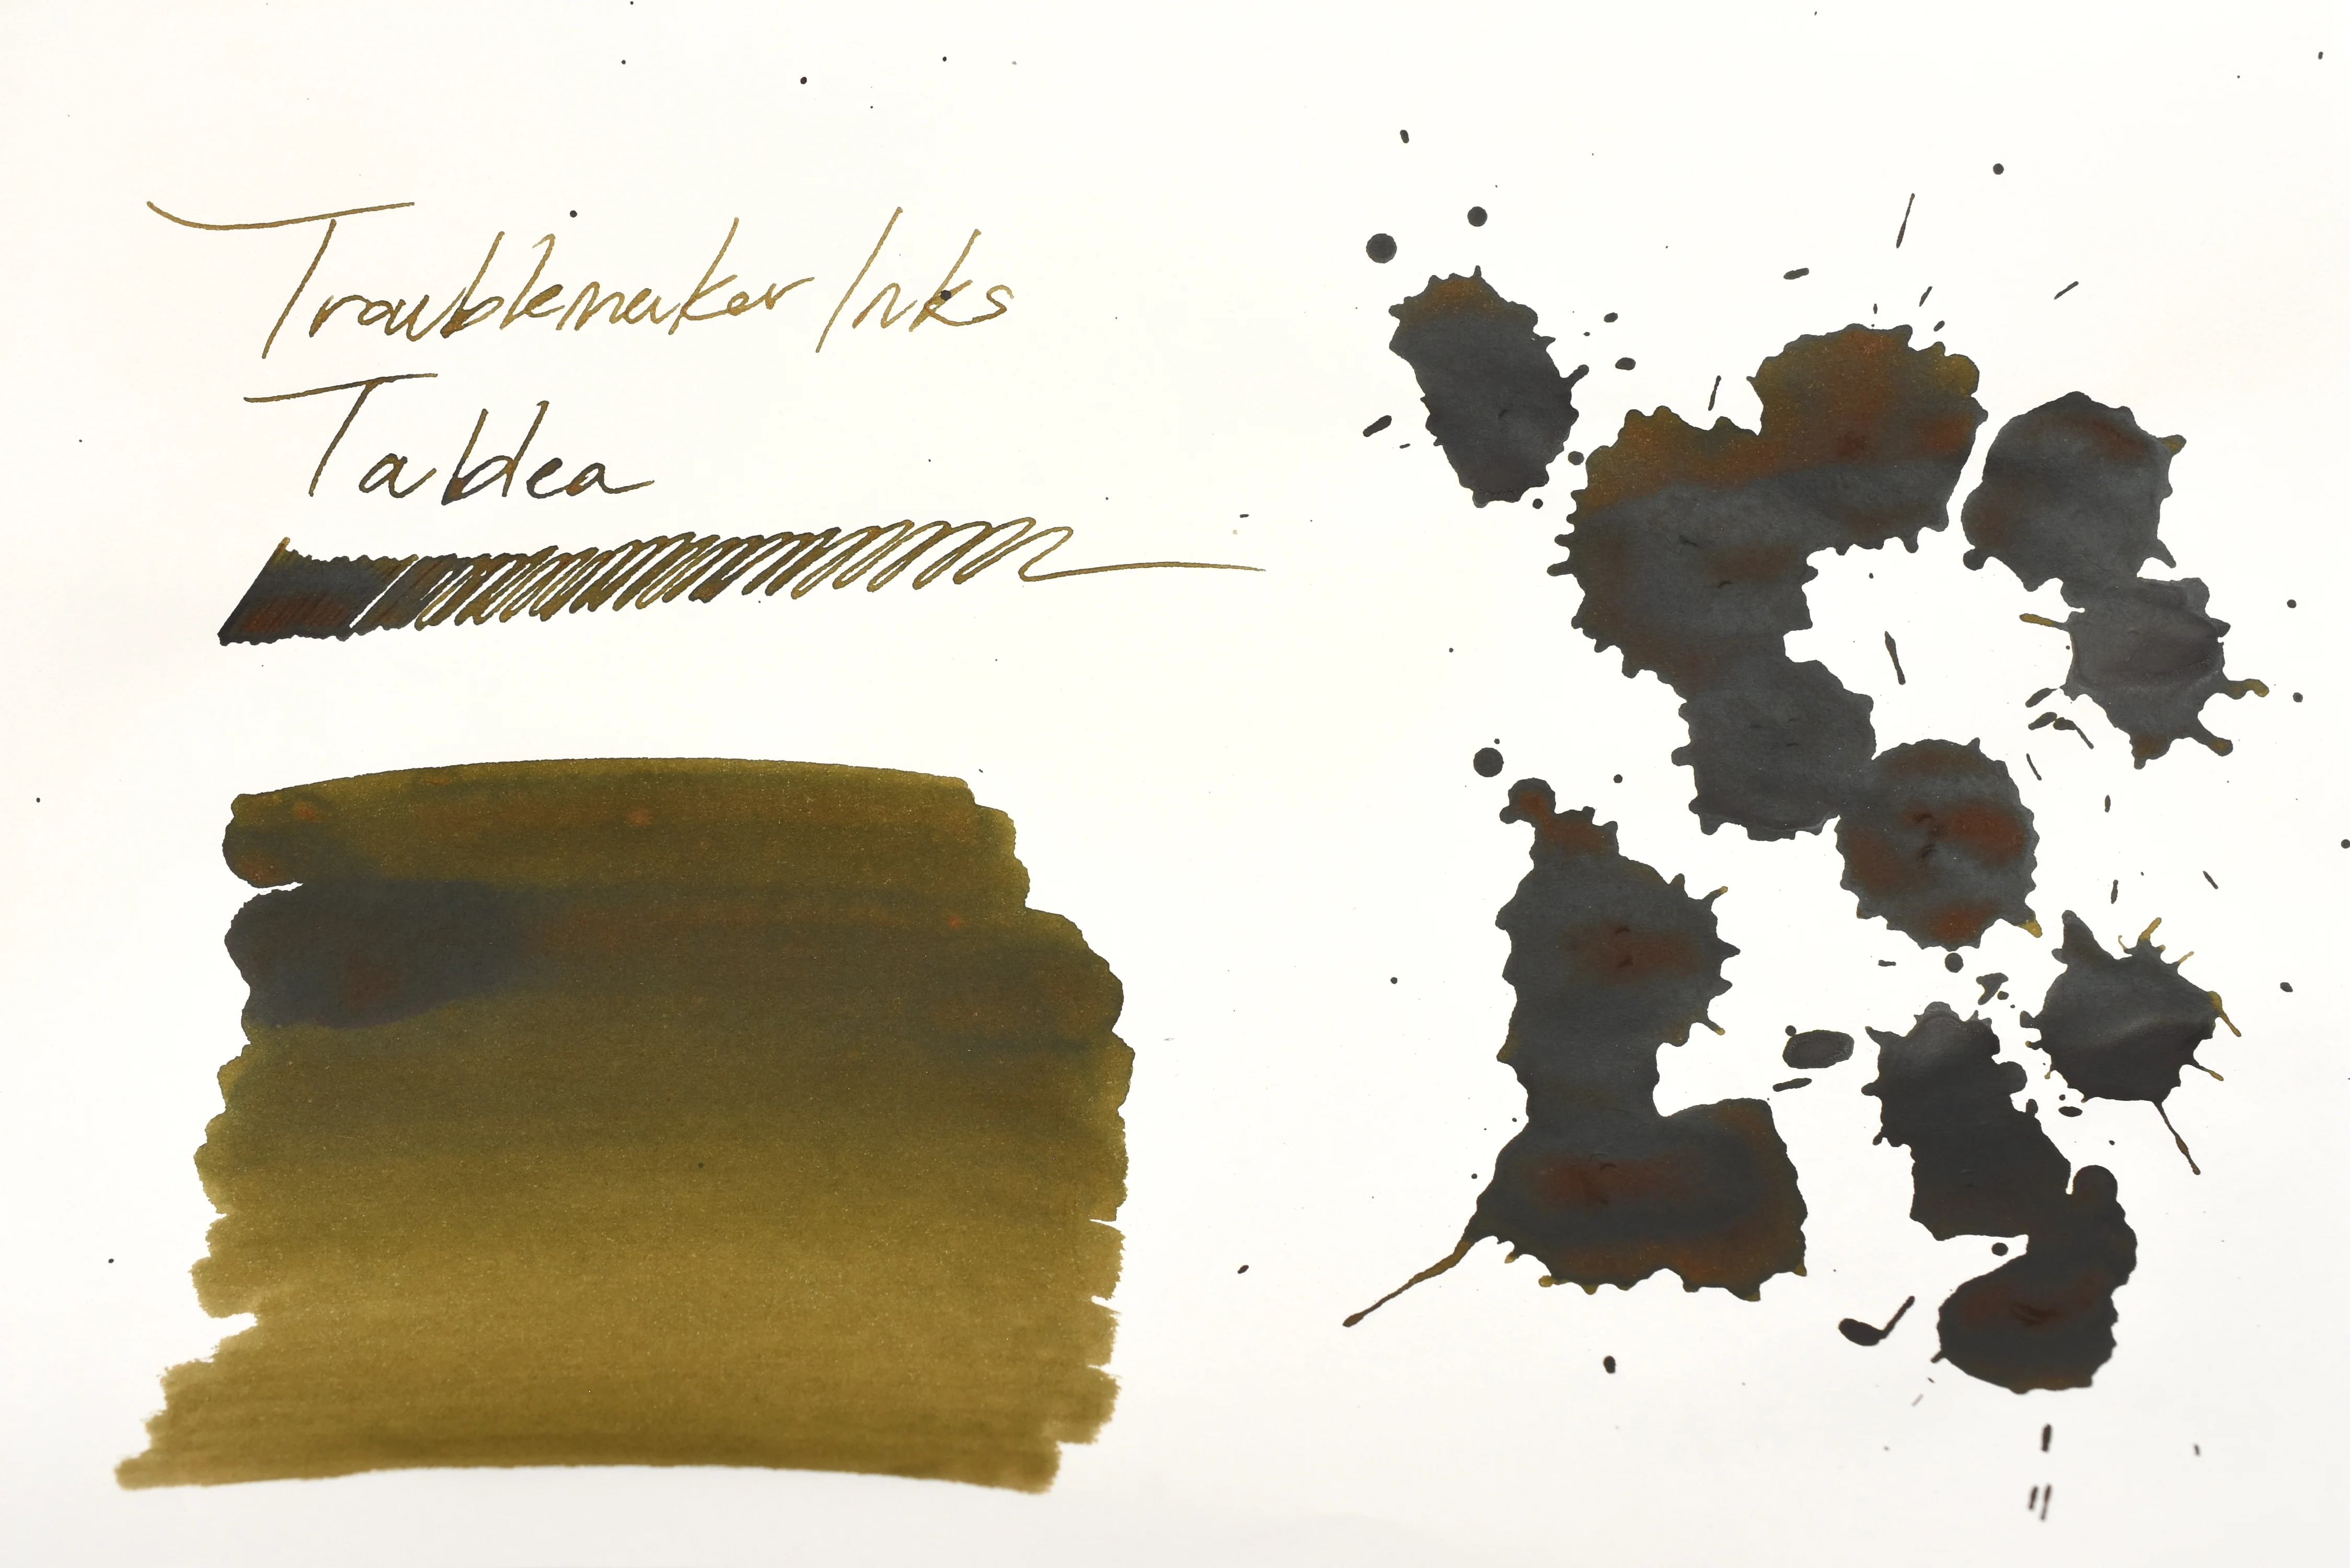 Troublemaker Inks
Tablea